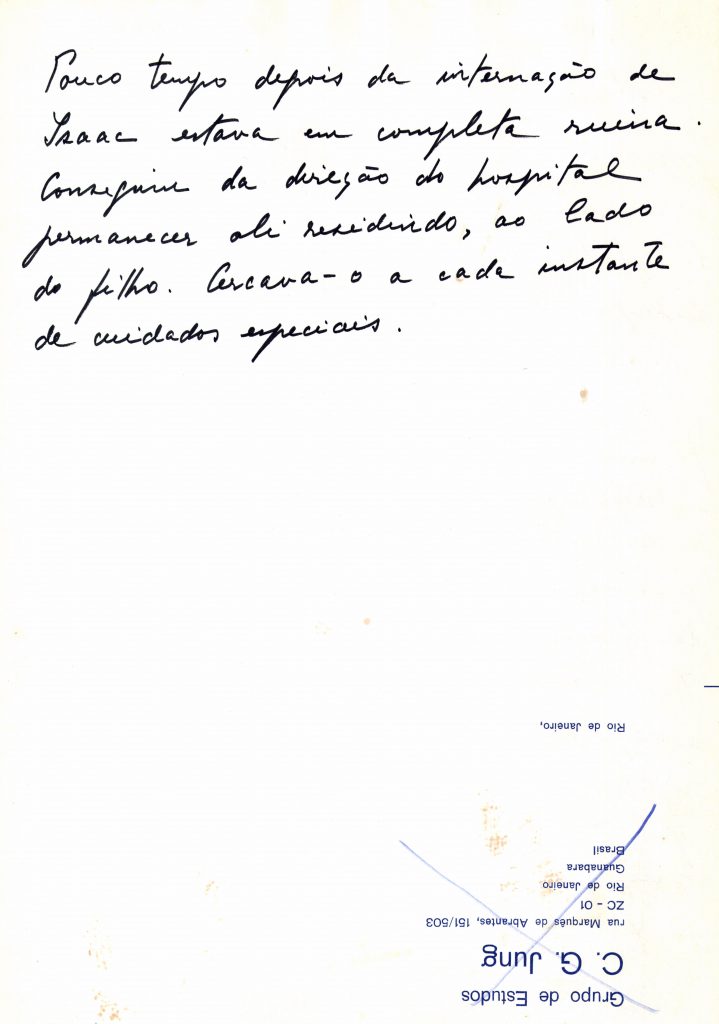 Pouco tempo depois da internação de
Isaac estava em completa ruina.
Conseguiu da direção do hospital
permanecer ali residindo, ao lado
do filho. Cercava-o a cada instante
de cuidados especiais.
Grupo de Estudos
C. G. Jung
rua Marquês de Abrantes, 151/503
ZC - 01
Rio de Janeiro
Guanabara
Brasil
Rio de Janeiro,